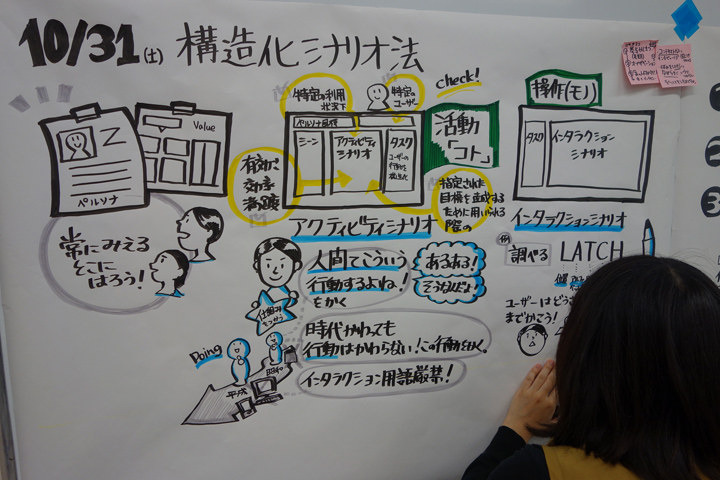 10/31(土) 構造化シナリオ法
ペルソナ
Value
常にみえる
とこに
はろう!
特定の利用
状況下
特定の
ユーザー
check!
シーン
アクティビティ
シナリオ
タスク
活動
「コト」
有効に
効率
満足
指定された
目標を達成する
ために用いられる
際の
アクティビティシナリオ
操作(モノ)
タスク
インタラクション
シナリオ
インタラクションシナリオ
人間てこういう
行動するよね!
をかく
あるある!
そうなんだよ
時代かわっても
行動はかわらない!この行動をかく。
インタラクション用語厳禁!
Doing
昭和
平成
例
調べる
LATCH
ユーザーはどう
までかこう!